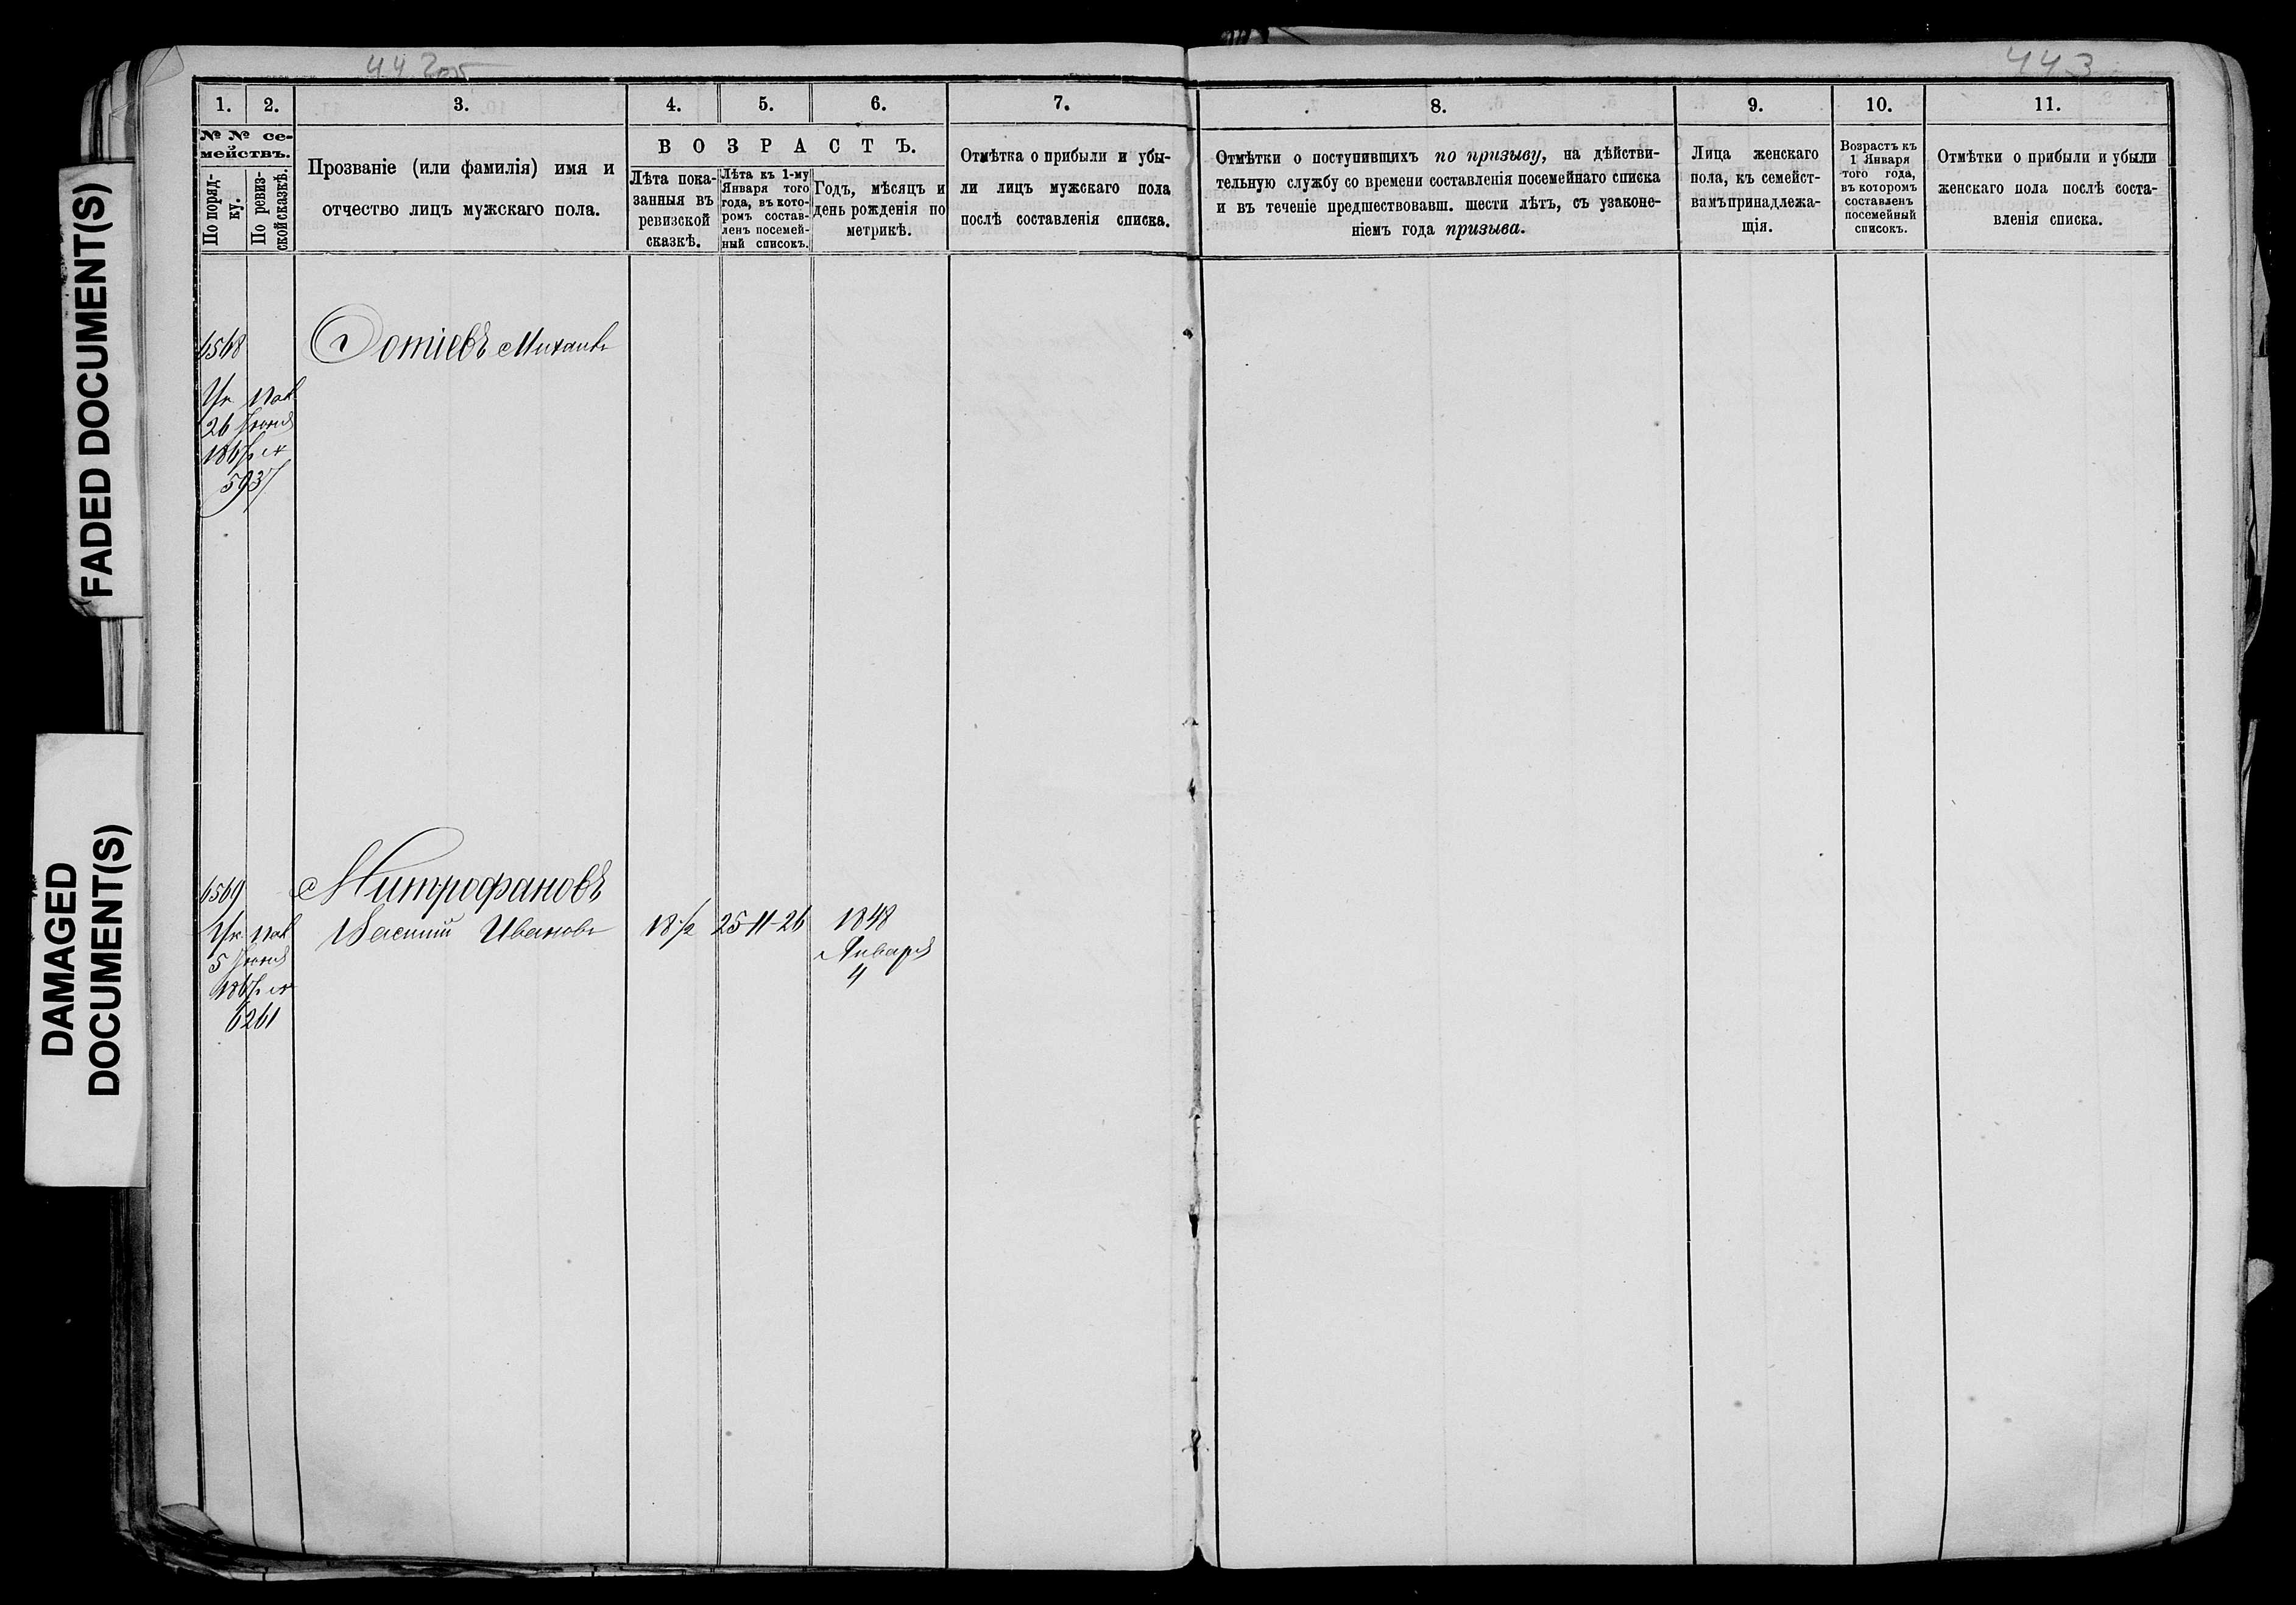 442об
443
1. 2. 3. 4. 5. 6. 7. 8. 9. 10. 11.
№ № се-
мействъ.
По поряд-
ку.
По ревиз-
ской сказкѣ.
Прозваніе (или фамилія) имя и
отчество лицъ мужскаго пола.
ВОЗРАСТЪ.
Лѣта пока-
занныя въ
ревизской
сказкѣ.
Лѣта къ 1-му
Января того
года, въ кото-
ромъ состав-
ленъ посемей-
ный списокъ.
Годъ, мѣсяцъ и
день рожденія по
метрикѣ.
Отмѣтка о прибыли и убы-
ли лицъ мужскаго пола
послѣ составленія списка.
Отмѣтки о поступившихъ по призыву, на дѣйстви-
тельную службу со времени составленія посемейнаго списка
и въ теченіе предшествовавш. шести лѣтъ, съ узаконе-
ніемъ года призыва.
Лица женскаго
пола, къ семейст-
вамъ принадлежа-
щія.
Возрастъ къ
1 Января
того года,
въ которомъ
составленъ
посемейный
списокъ.
Отмѣтки о прибыли и убыли
женскаго пола послѣ соста-
вленія списка.
6568 Фотіевъ
Ук Пал
26
5937
6569 Митрофановъ
Ук Пал Василий Ивановъ 18½ 25-11-26 1848
5 Января
4
6261
FADED DOCUMENT(S)
DAMAGED
DOCUMENT(S)